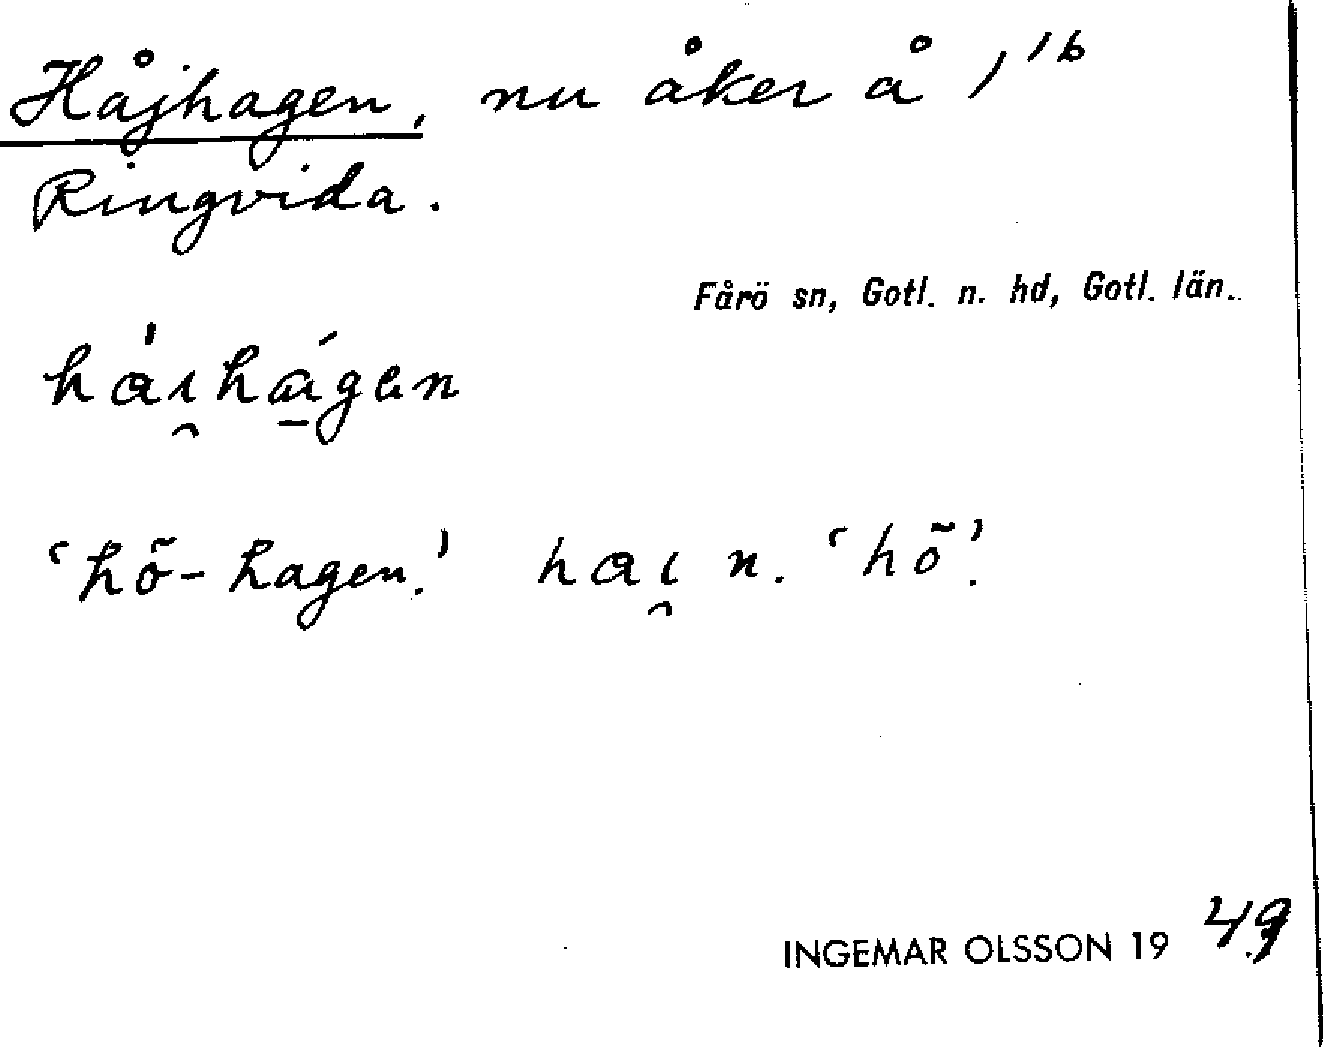 Håjhagen, nu åker å 1 1b
Ringvida.
Fårö sn, Gotl. n. hd, Gotl. län.
hɑ́i̯hɑ̱́gen
‘hö-hagen.’ hɑi̯ n. ‘hö’.
INGEMAR OLSSON 19 49